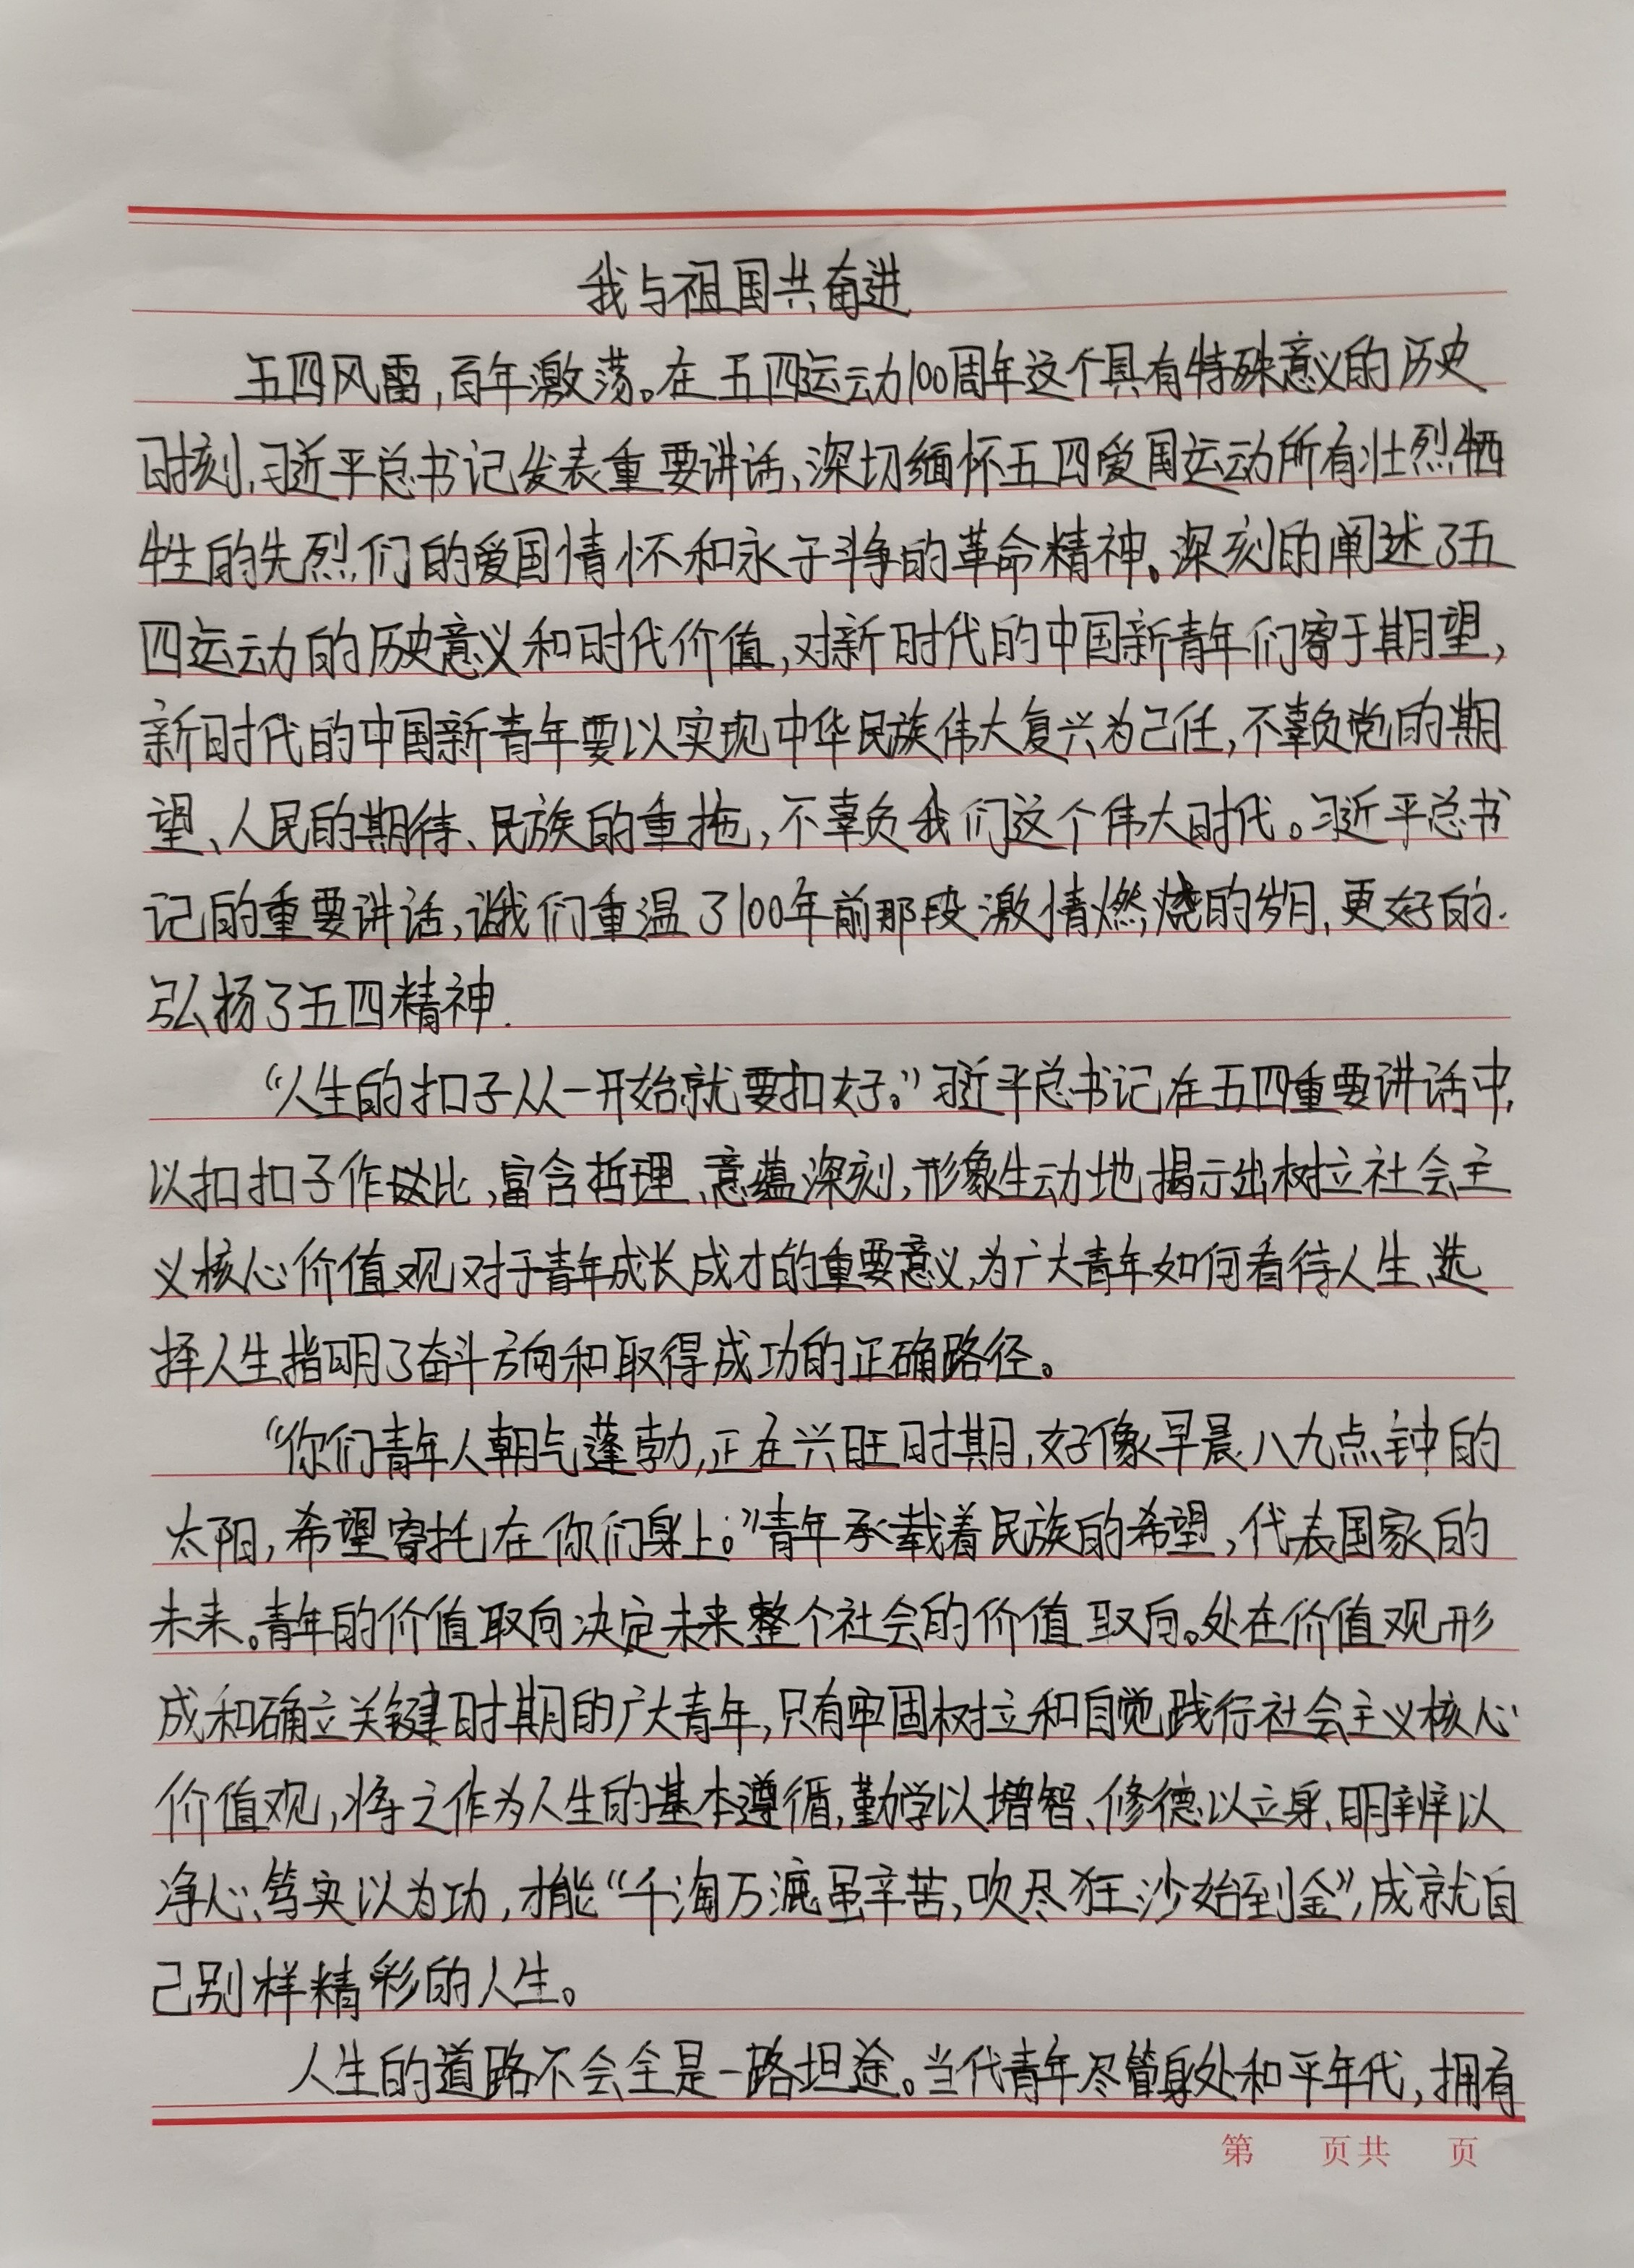 我与祖国共奋进
五四风雷,百年激荡。在五四运动100周年这个具有特殊意义的历史
时刻,习近平总书记发表重要讲话、深切缅怀五四爱国运动所有壮烈牺
牲的先烈们的爱国情怀和永于斗争的革命精神。深刻的阐述了五
四运动的历史意义和时代价值,对新时代的中国新青年们寄于期望,
新时代的中国新青年要以实现中华民族伟大复兴为己任,不辜负党的期
望、人民的期待、民族的重拖,不辜负我们这个伟大时代。习近平总书
记的重要讲话,让我们重温了100年前那段激情燃烧的岁月,更好的.
弘扬了五四精神.
“人生的扣子从一开始就要扣好。”习近平总书记在五四重要讲话中,
以扣扣子作比,富含哲理、意蕴深刻,形象生动地揭示出树立社会主
义核心价值观对于青年成长成才的重要意义,为广大青年如何看待人生、选
择人生指明了奋斗方向和取得成功的正确路径。
“你们青年人朝气蓬勃,正在兴旺时期,好像早晨八九点钟的
太阳,希望寄托在你们身上。”青年承载着民族的希望,代表国家的
未来。青年的价值取向决定未来整个社会的价值取向。处在价值观形
成和确立关键时期的广大青年,只有牢固树立和自觉践行社会主义核心
价值观,将之作为人生的基本遵循,勤学以增智、修德以立身、明辨以
净心、笃实以为功,才能“千淘万漉虽辛苦,吹尽狂沙始到金”,成就自
己别样精彩的人生。
人生的道路不会全是一路坦途。当代青年尽管身处和平年代,拥有
第 页共 页